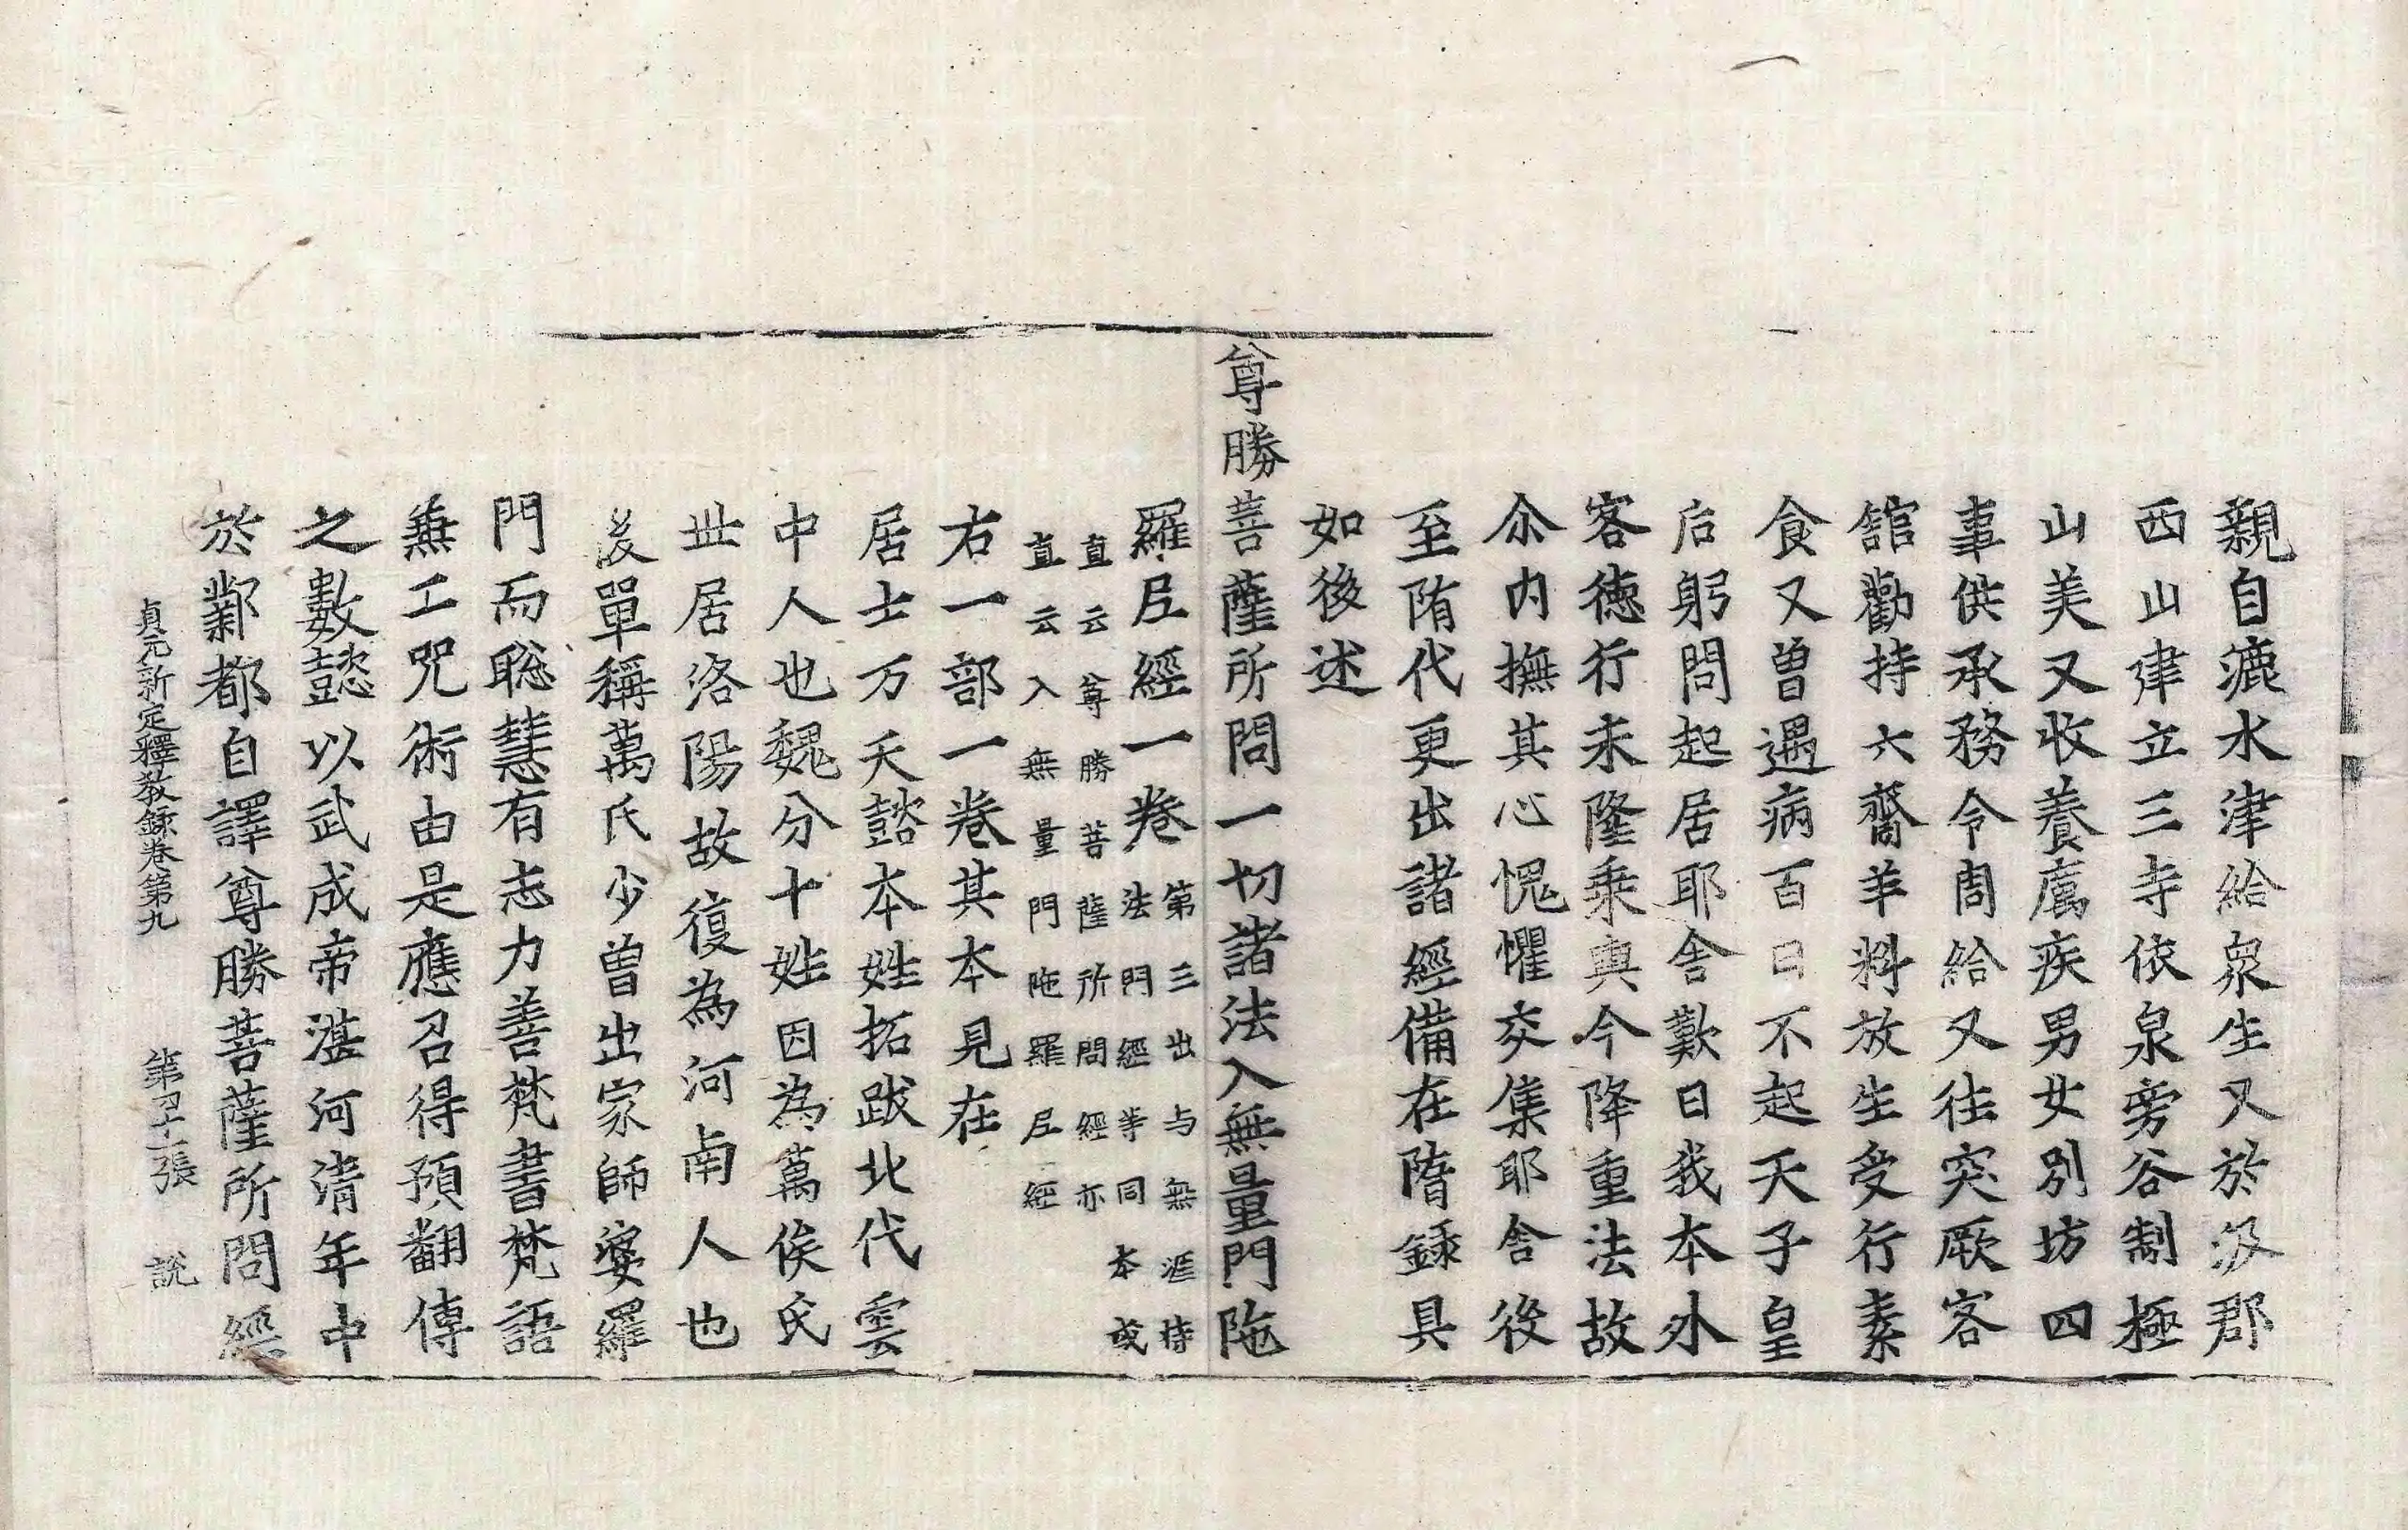 親自漉水津給衆生又於汲郡
西山建立三寺依泉旁谷制極
山美又收養厲疾男女別坊四
事供承務令周給又往突厥客
館勸持六齋羊料放生受行素
食又曾遇病百日不起天子皇
后躬問起居耶舍歎曰我本外
客德行未隆乗輿今降重法故
尒内撫其心愧懼交集耶舍後
至隋代更出諸經備在隋録具
如後述
尊勝菩薩所問一切諸法入無量門陁
羅尼經一卷
第三出与無涯持
法門經等同本或
直云尊勝菩薩所問經亦
直云入無量門陁羅尼經
右一部一卷其本見在
居士万天懿本姓拓跋北代雲
中人也魏分十姓因為萬俟氏
丗居洛陽故復為河南人也
後單稱萬氏少曾出家師婆羅
門而聡慧有志力善梵書梵語
兼工咒術由是應召得預翻傳
之數懿以武成帝湛河清年中
於鄴都自譯尊勝菩薩所問經
貞元新定釋教錄卷第九 第 張 說